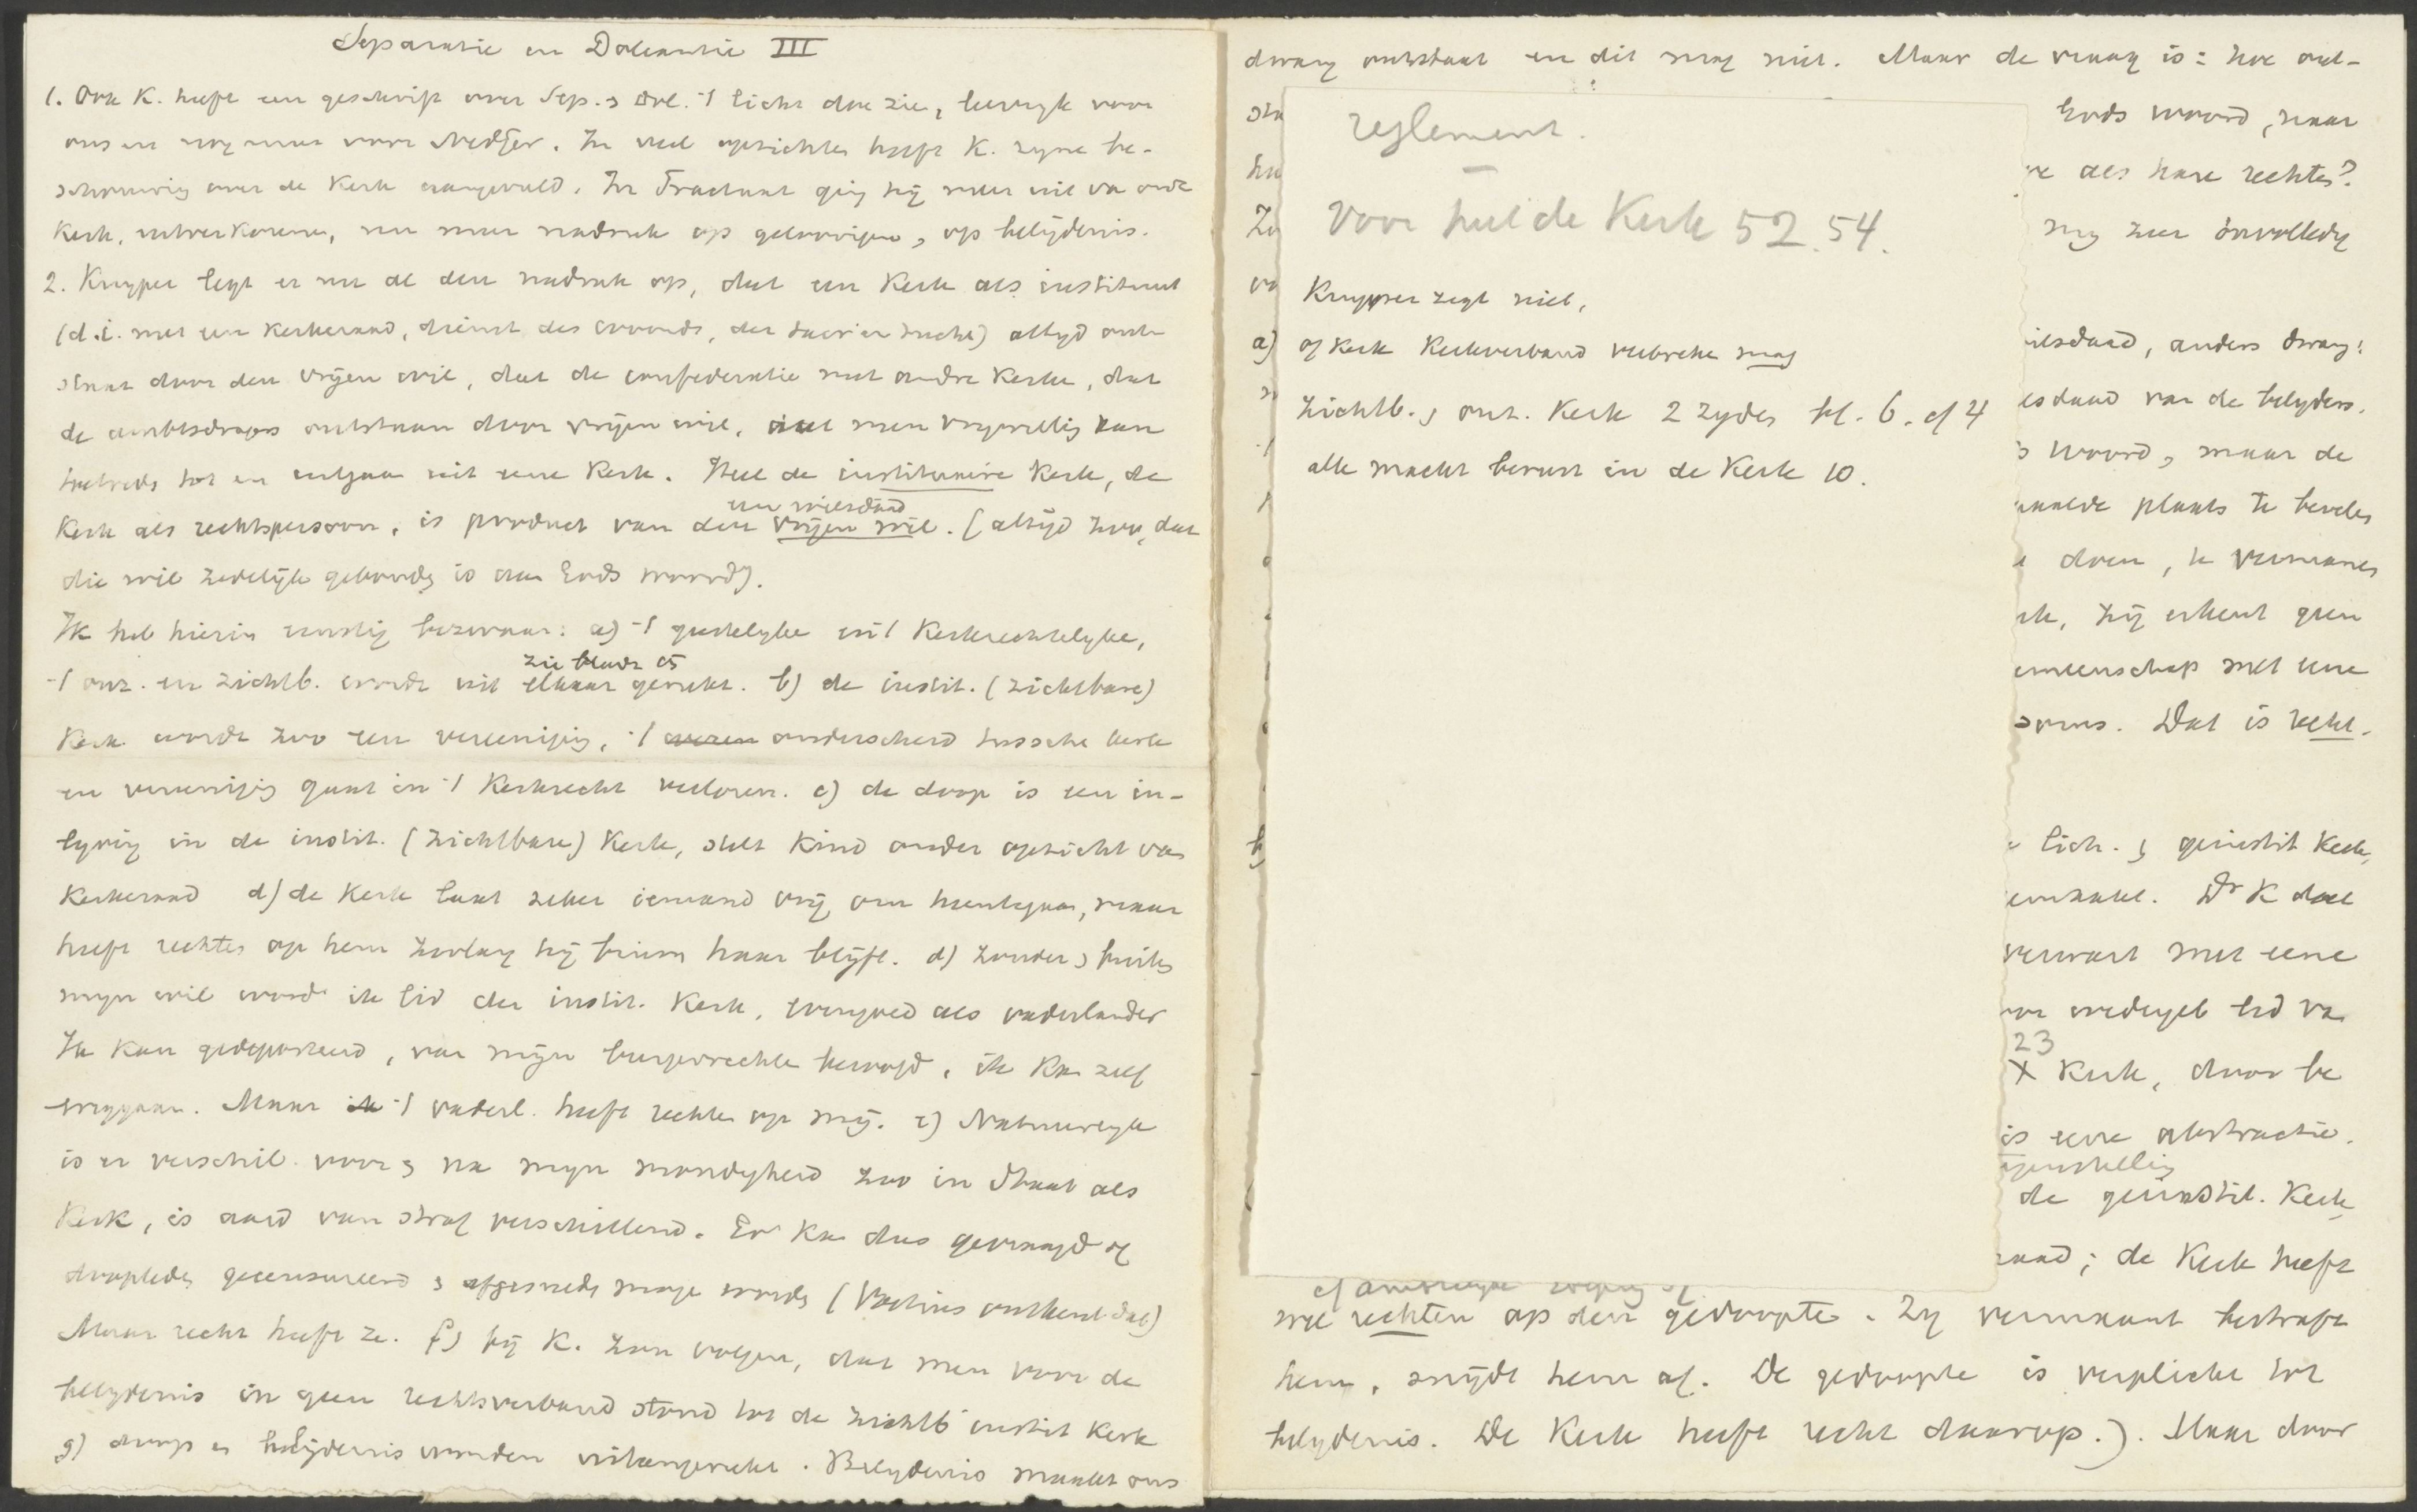 Separatie en Doleantie III
1. Ook K. heeft een geschrift over Sep. & Dol. 't licht doe zien,
ons en nog meer voor Nedger. In veel opzichten heeft K. zyne be-
schouwing over de Kerk aangevuld. In Tractaat ging hij meer uit van
Kerk, uitverkorenen, nu meer nadruk op geloovigen, op belijdenis.
2. Kuyper legt er nu al den nadruk op, dat een Kerk als instituut
(d.i. met een Kerkeraad, dienst des woords, der sacr. en tucht) altyd ont-
staat door den vrijen wil, dat de confederatie met andre Kerken, dat
de ambtsdragers ontstaan door vrijen wil, dat men vrywillig kan
toetreden tot en uitgaan uit eene Kerk. Heel de institutaire Kerk, de
een wilsdaad
Kerk als rechtspersoon, is product van den vrijen wil. (altijd zoo, dat
die wil zedelijk gebonden is aan Gods woord).
Ik heb hierin ernstig bezwaar: a) 't geestelyke en 't Kerkrechtelyke,
zie bladz
't onz. en zichtb. wordt uit elkaar gerukt. b) de instit. (zichtbare)
Kerk wordt zoo een vereeniging, 't onderscheid tussche kerk
en vereeniging gaat in 't Kerkrecht verloren. c) de doop is een in-
lyving in de instit. (zichtbare) Kerk, stelt Kind onder opzicht van
Kerkeraad d) de Kerk laat zeker iemand vrij om heentegaan, maar
heeft rechten op hem zoolang hij binnen haar blijft. d) zonder & buiten
myn wil word ik lid der instit. Kerk, evengoed als vaderlander
Ik kan gedeporteerd, van mijn burgerrechten beroofd, ik kan zelf
weggaan. Maar 't vaderl. heeft rechten op mij. e) Natuurlyk
is er verschil voor & na myn mondigheid zoo in Staat als
Kerk, is aard van straf verschillend. Er kan dus gevraagd of
doopleden gecensureerd & afgesneden moge worden (Voetius ontkent dat)
Maar recht heeft ze. f) bij K. zou volgen, dat men voor de
belydenis in geen rechtsverband stond tot de zichtb instit Kerk
g) doop en belijdenis worden uiteengerukt. Belydenis maakt ons
dwang ontstaat en dit mag niet. Maar de vraag is: hoe ont-
Gods woord, naar
als hare rechten?
nog zeer onvolledig
wilsdaad, anders dwang!
van de belyders.
woord, maar de
plaats te bevelen
doen, te vermanen
zij erkent geen
met eene
Dat is recht.
geinstit Kerk
Dr K
verwart met eene
lid van
23
X Kerk, door be
is eene abstractie.
de geinstit. Kerk
; de Kerk heeft
reglement.
Voor heel de Kerk 52. 54.
Kuyper zegt niet,
a) of Kerk Kerkverband verbreken mag
zichtb. & onz. Kerk 2 zyden bl. 6. of 4
alle macht berust in de Kerk 10.
wel rechten op den gedoopte. Zy vermaant bestraft
hem, snijdt hem af. De gedoopte is verplicht tot
belydenis. De Kerk heeft recht daarop.). Maar door